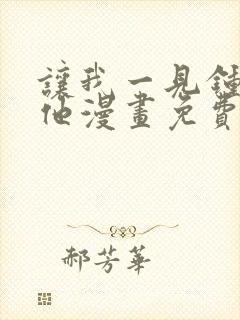 讓我一見鍾
他漫畫免費
郝芳華